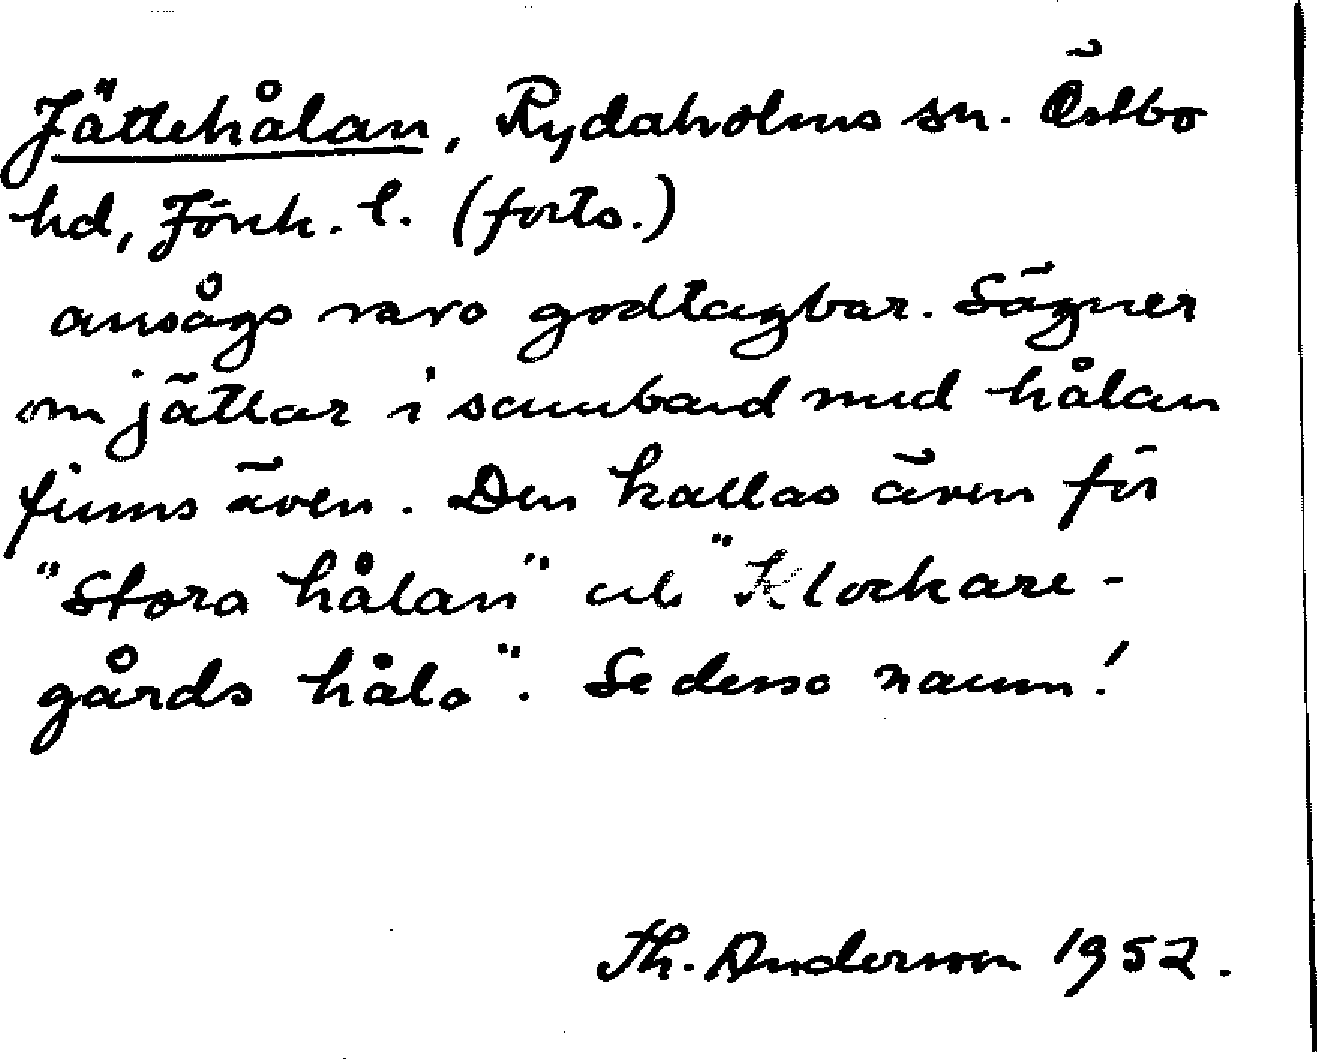 Jättehålan, Rydaholms sn. Östbo
hd, Jönk. l. (forts.)
ansågs vara godtagbar. Sägner
om jättar i samband med hålan
finns även. Den kallas även för
"Stora hålan" och "Klockare-
gårds håla". Se dessa namn!
Th. Andersson 1952.